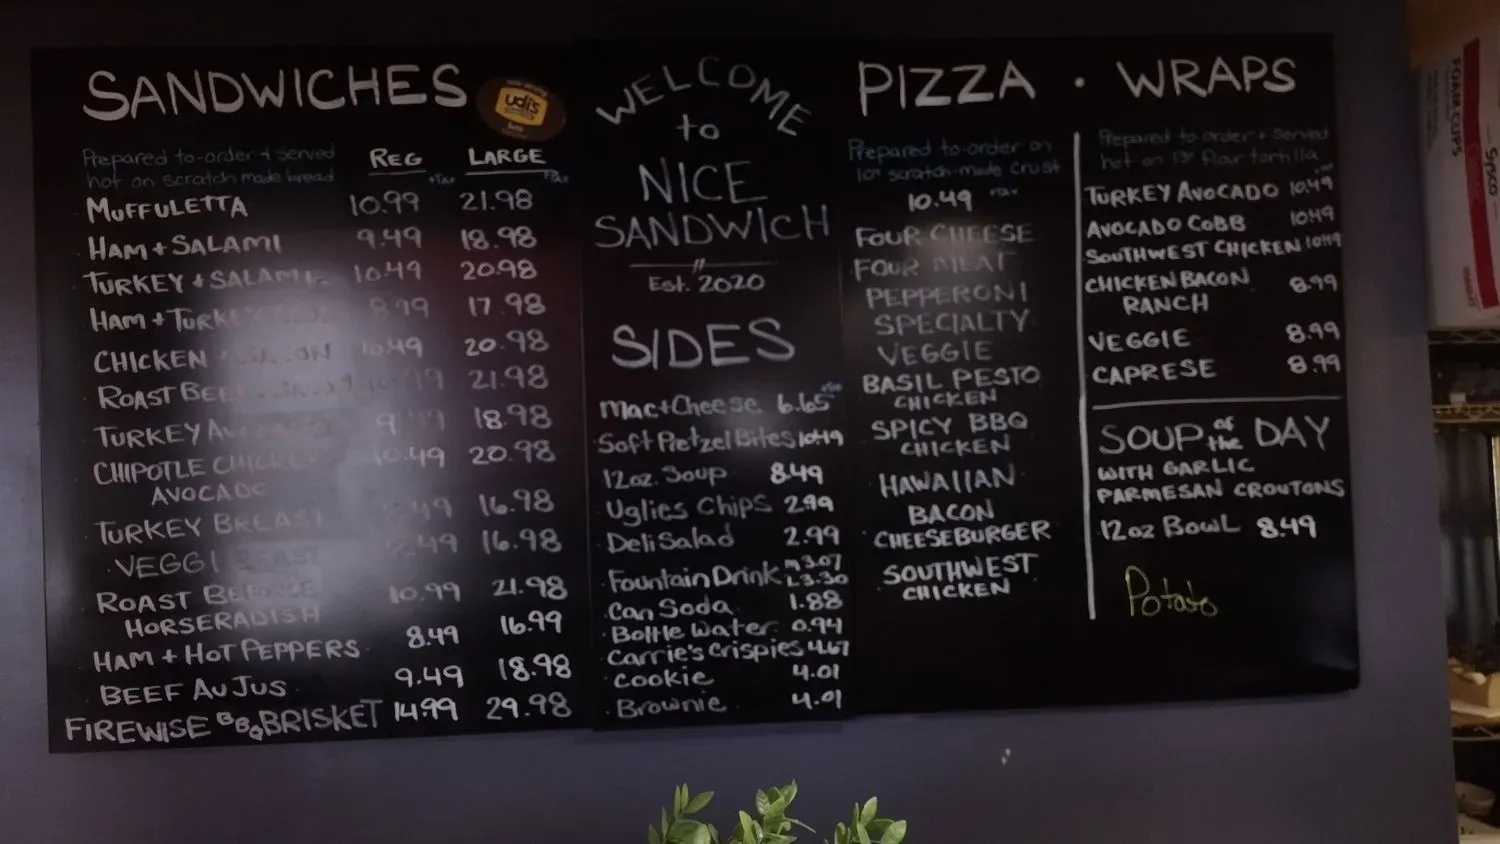 SANDWICHES
udi's
Prepared to-order + served
hot on scratch made bread
REG LARGE
+TAX +TAX
MUFFULETTA 10.99 21.98
HAM + SALAMI 9.49 18.98
TURKEY + SALAMI 10.49 20.98
HAM + TURKEY 8.99 17.98
CHICKEN BACON 10.49 20.98
ROAST BEEF 21.98
TURKEY 18.98
CHIPOTLE CHICKEN 10.49 20.98
AVOCADO
TURKEY BREAST 16.98
VEGGI 16.98
ROAST BEEF 10.99 21.98
HORSERADISH
HAM + HOT PEPPERS 8.49 16.99
BEEF AU JUS 9.49 18.98
FIREWISE BBQ BRISKET 14.99 29.98
WELCOME
to
NICE
SANDWICH
Est. 2020
SIDES
Mac+Cheese 6.65
Soft Pretzel Bites 10.49
12oz. Soup 8.49
Uglies Chips 2.99
Deli Salad 2.99
Fountain Drink M 3.07
L 3.30
Can Soda 1.88
Bottle Water 0.94
Carrie's Crispies 4.67
Cookie 4.01
Brownie 4.01
PIZZA · WRAPS
Prepared to-order on
10" scratch-made crust
10.49 +TAX
FOUR CHEESE
FOUR MEAT
PEPPERONI
SPECIALTY
VEGGIE
BASIL PESTO
CHICKEN
SPICY BBQ
CHICKEN
HAWAIIAN
BACON
CHEESEBURGER
SOUTHWEST
CHICKEN
Prepared to-order + served
hot on 13" flour tortilla
TURKEY AVOCADO 10.49
AVOCADO COBB 10.49
SOUTHWEST CHICKEN 10.49
CHICKEN BACON 8.99
RANCH
VEGGIE 8.99
CAPRESE 8.99
SOUP of the DAY
WITH GARLIC
PARMESAN CROUTONS
12oz BOWL 8.49
Potato
FOAM CUPS
Sysco